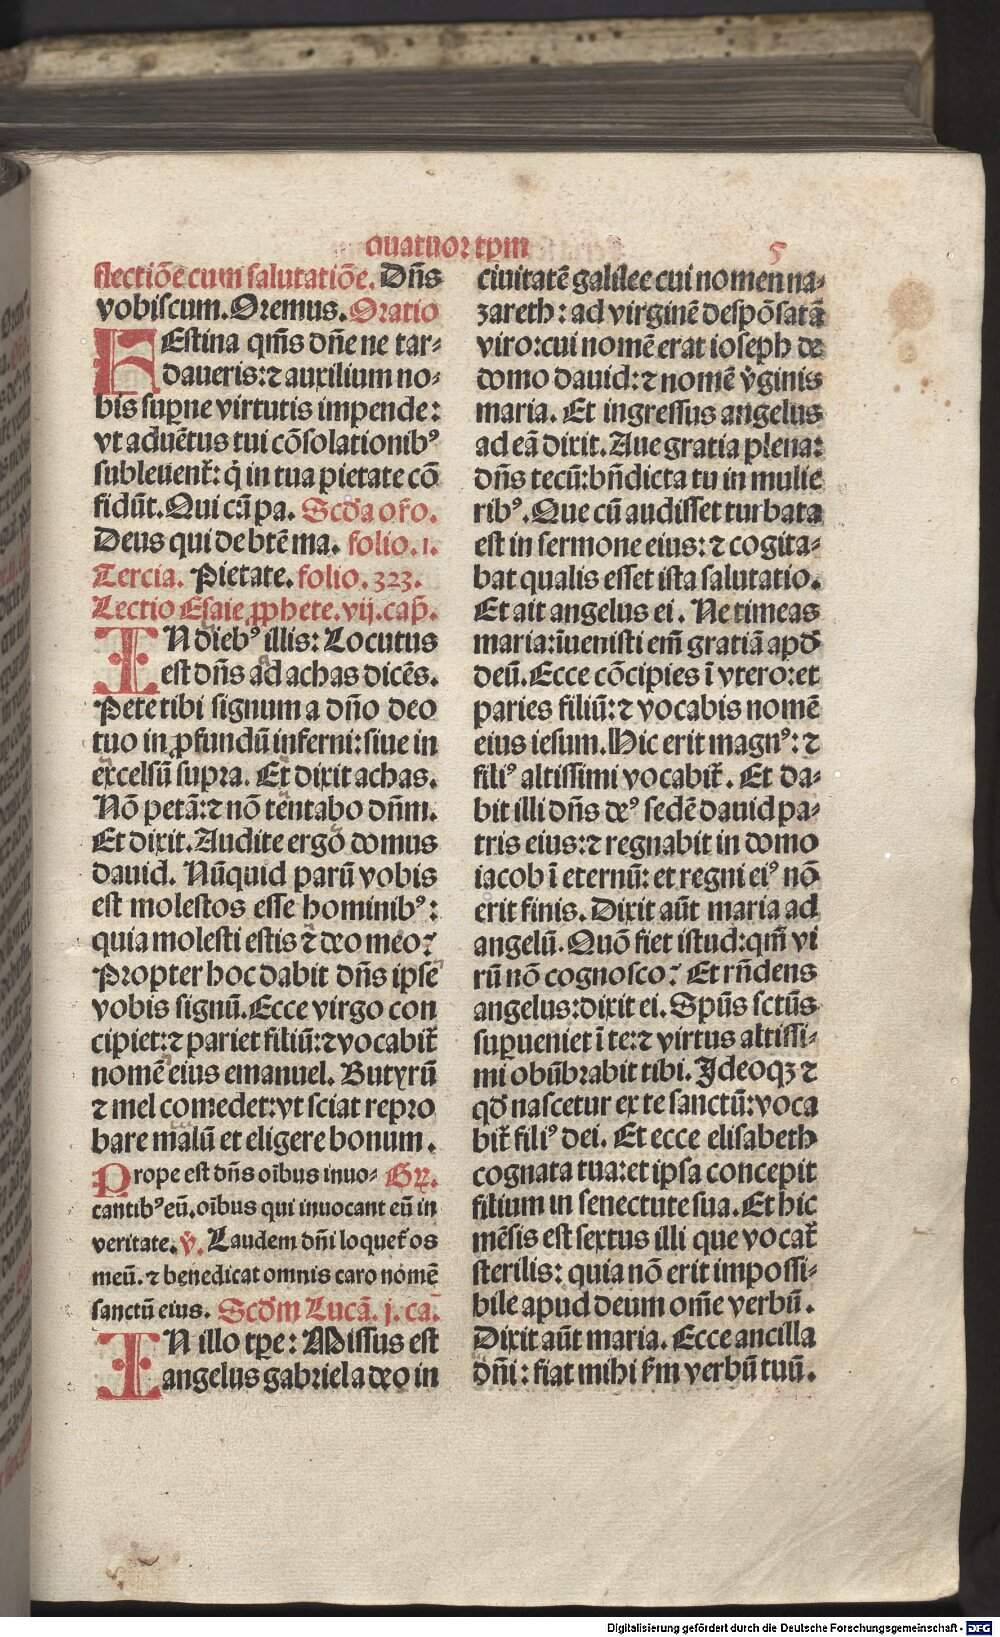 quatuor tpm 5
flectiõe cum salutatiõe. Dñs
vobiscum. Oremus. Oratio
FEstina qm̃s dñe ne tar⸗
daueris: ⁊ auxilium no⸗
bis supne virtutis impende:
vt aduẽtus tui cõsolationibꝰ
subleuent᷑: q̇ in tua pietate cõ
fidũt. Qui cũ pa. Scd̃a or̃o.
Deus qui de btẽ ma. folio. 1.
Tercia. Pietate. folio. 323.
Lectio Esaie ꝓphete. vij. cap̃.
IN diebꝰ illis: Locutus
est dñs ad achas dicẽs.
Pete tibi signum a dño deo
tuo in ꝓfundũ inferni: siue in
excelsũ supra. Et dixit achas.
Nõ petã: ⁊ nõ tentabo dñm.
Et dixit. Audite ergo domus
dauid. Nũquid parũ vobis
est molestos esse hominibꝰ:
quia molesti estis ⁊ deo meo?
Propter hoc dabit dñs ipse
vobis signũ. Ecce virgo con
cipiet: ⁊ pariet filiũ: ⁊ vocabit᷑
nomẽ eius emanuel. Butyrũ
⁊ mel comedet: vt sciat repro
bare malũ et eligere bonum.
Prope est dñs oĩbus inuo⸗ Gꝝ.
cantibꝰ eũ. oĩbus qui inuocant eũ in
veritate. v̇. Laudem dñi loquet᷑ os
meũ. ⁊ benedicat omnis caro nomẽ
sanctũ eius. Scd̃m Lucã. j. ca.
IN illo tp̃e: Missus est
angelus gabriel a deo in
ciuitatẽ galilee cui nomen na⸗
zareth: ad virginẽ despõsatã
viro: cui nomẽ erat ioseph de
domo dauid: ⁊ nomẽ v̇ginis
maria. Et ingressus angelus
ad eã dixit. Aue gratia plena:
dñs tecũ: bñdicta tu in mulie
ribꝰ. Que cũ audisset turbata
est in sermone eius: ⁊ cogita⸗
bat qualis esset ista salutatio.
Et ait angelus ei. Ne timeas
maria: ĩuenisti em̃ gratiã apd̃
deũ. Ecce cõcipies ĩ vtero: et
paries filiũ: ⁊ vocabis nomẽ
eius iesum. Hic erit magnꝰ: ⁊
filiꝰ altissimi vocabit᷑. Et da⸗
bit illi dñs deꝰ sedẽ dauid pa⸗
tris eius: ⁊ regnabit in domo
iacob ĩ eternũ: et regni eiꝰ nõ
erit finis. Dixit aũt maria ad
angelũ. Quõ fiet istud: qm̃ vi
rũ nõ cognosco? Et rñdens
angelus: dixit ei. Spũs sctũs
supueniet ĩ te: ⁊ virtus altissi⸗
mi obũbrabit tibi. Ideoqꝫ ⁊
qd̃ nascetur ex te sanctũ: voca
bit᷑ filiꝰ dei. Et ecce elisabeth
cognata tua: et ipsa concepit
filium in senectute sua. Et hic
mẽsis est sextus illi que vocat᷑
sterilis: quia nõ erit impossi⸗
bile apud deum om̃e verbũ.
Dixit aũt maria. Ecce ancilla
dñi: fiat mihi s̃m verbũ tuũ.
Digitalisierung gefördert durch die Deutsche Forschungsgemeinschaft - DFG